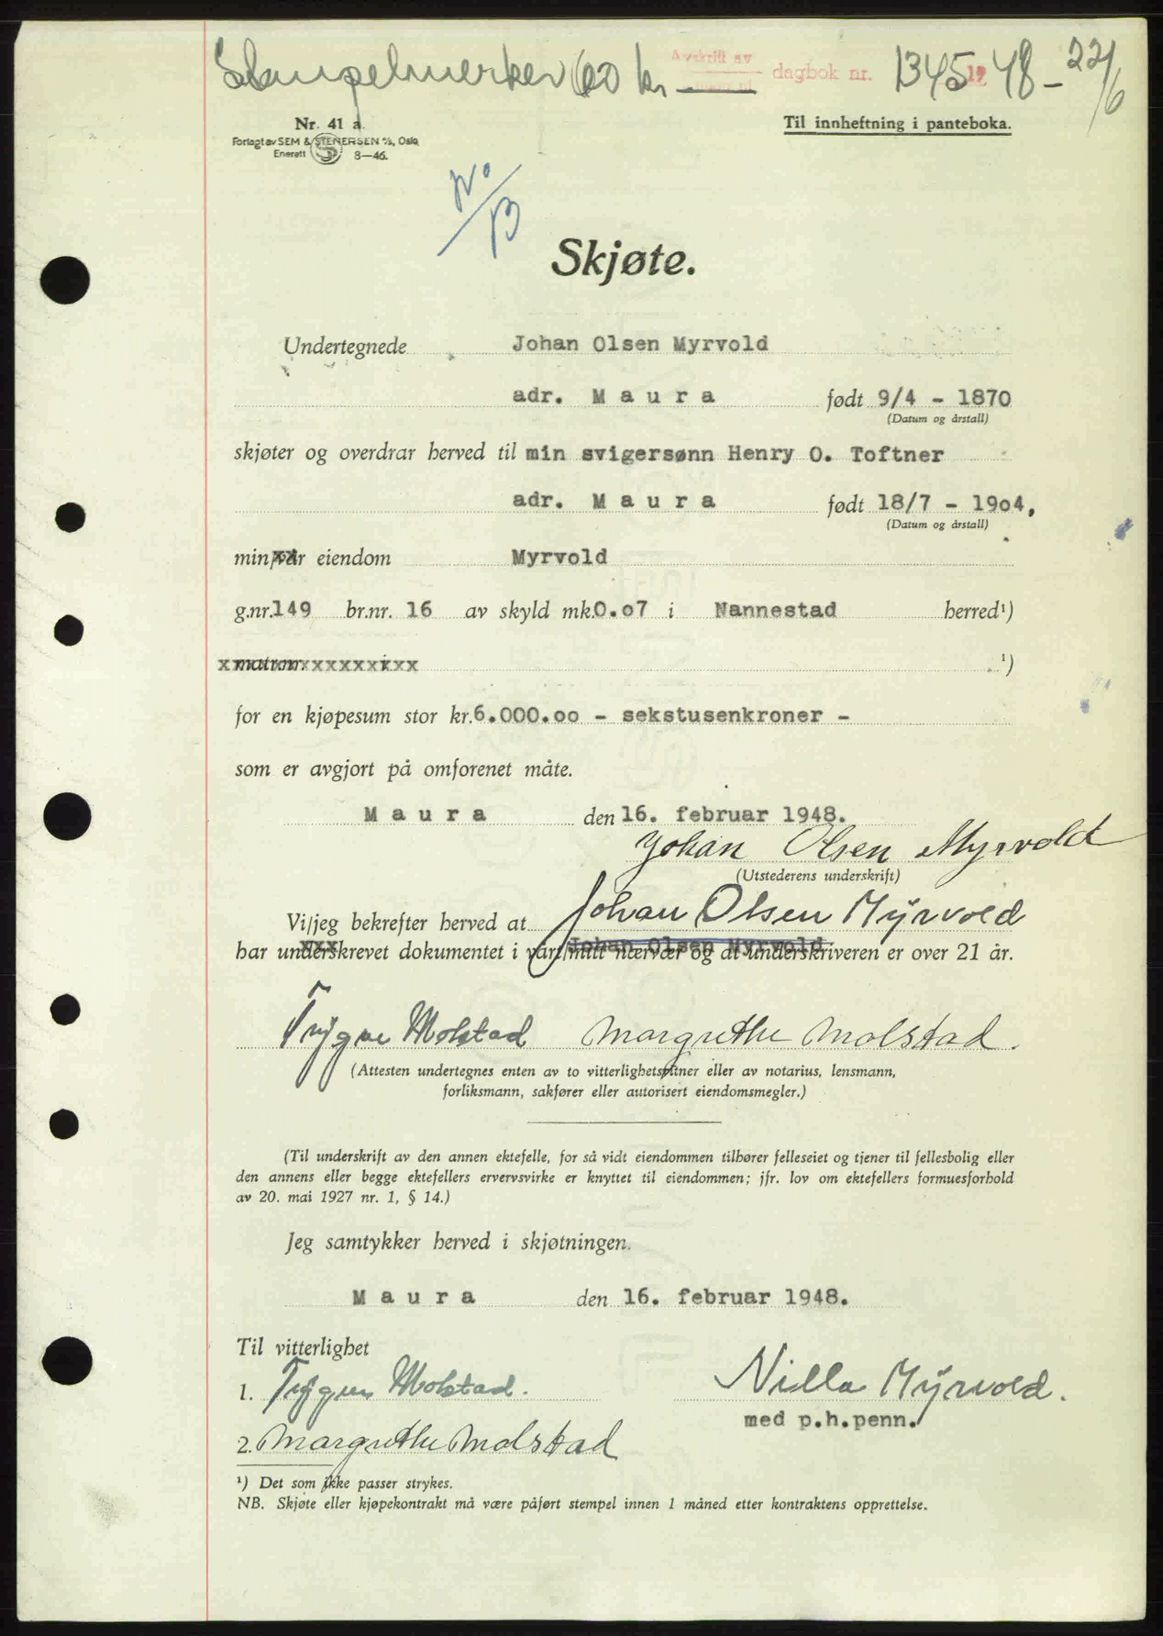 Stempelmerker 60 kr. Avskrift av dagbok nr. 1345 19 48 - 22/6
Nr. 41 a.
Til innheftning i panteboka.
Forlagt av SEM & STENERSEN A/S, Oslo
Enerett S 8—46.
No/B
Skjøte.
Undertegnede Johan Olsen Myrvold
adr. M a u r a født 9/4 - 1870
(Datum og årstall)
skjøter og overdrar herved til min svigersønn Henry O. Toftner
adr. M a u r a født 18/7 - 19o4,
(Datum og årstall)
min/vår eiendom Myrvold
g.nr. 149 br.nr. 16 av skyld mk. 0.o7 i Nannestad herred¹)
xmatr.nr.xxxxxxxixx ¹)
for en kjøpesum stor kr. 6.000.oo - sekstusenkroner -
som er avgjort på omforenet måte.
M a u r a den 16. februar 1948.
Johan Olsen Myrvold
(Utstederens underskrift)
Vi/jeg bekrefter herved at Johan Olsen Myrvold
Johan Olsen Myrvold
har underskrevet dokumentet i vårt/mitt nærvær og at underskriveren er over 21 år.
Trygve Molstad Margrethe Molstad.
(Attesten undertegnes enten av to vitterlighetsvitner eller av notarius, lensmann,
forliksmann, sakfører eller autorisert eiendomsmegler.)
(Til underskrift av den annen ektefelle, for så vidt eiendommen tilhører felleseiet og tjener til fellesbolig eller
den annens eller begge ektefellers ervervsvirke er knyttet til eiendommen; jfr. lov om ektefellers formuesforhold
av 20. mai 1927 nr. 1, § 14.)
Jeg samtykker herved i skjøtningen.
M a u r a den 16. februar 1948.
Til vitterlighet
1. Trygve Molstad. Nilla Myrvold.
med p.h.penn.
2. Margrethe Molstad
¹) Det som ikke passer strykes.
NB. Skjøte eller kjøpekontrakt må være påført stempel innen 1 måned etter kontraktens opprettelse.